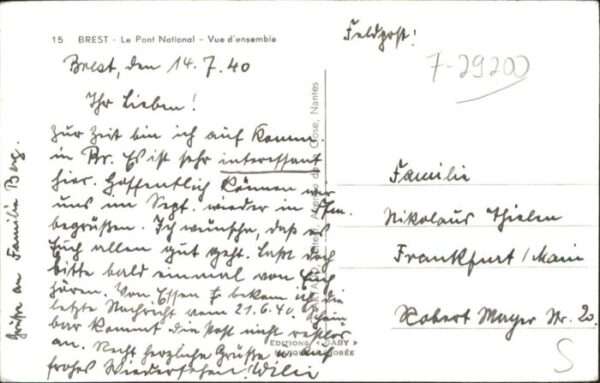 15 BREST - Le Pont National - Vue d'ensemble
Brest, den 14.7.40
Ihr Lieben!
Zur Zeit bin ich auf Komm.
in Br. Es ist sehr interessant
hier. Hoffentlich können wir
uns im Sept. wieder in
begrüßen. Ich wünsche, daß es
Euch allen gut geht. Laßt doch
bitte bald einmal von Euch
hören. Von Essen bekam ich die
letzte Nachricht vom 21.6.40. Schein
bar kommt die Post nicht restlos
an. Recht herzliche Grüße u. auf
frohes Wiedersehen! Willi
Grüße an Familie Berg.
Nantes
EDITIONS "GABY"
Feldpost!
7-29200
Familie
Nikolaus Thielen
Frankfurt/Main
Robert Mayer Str. 20.
S